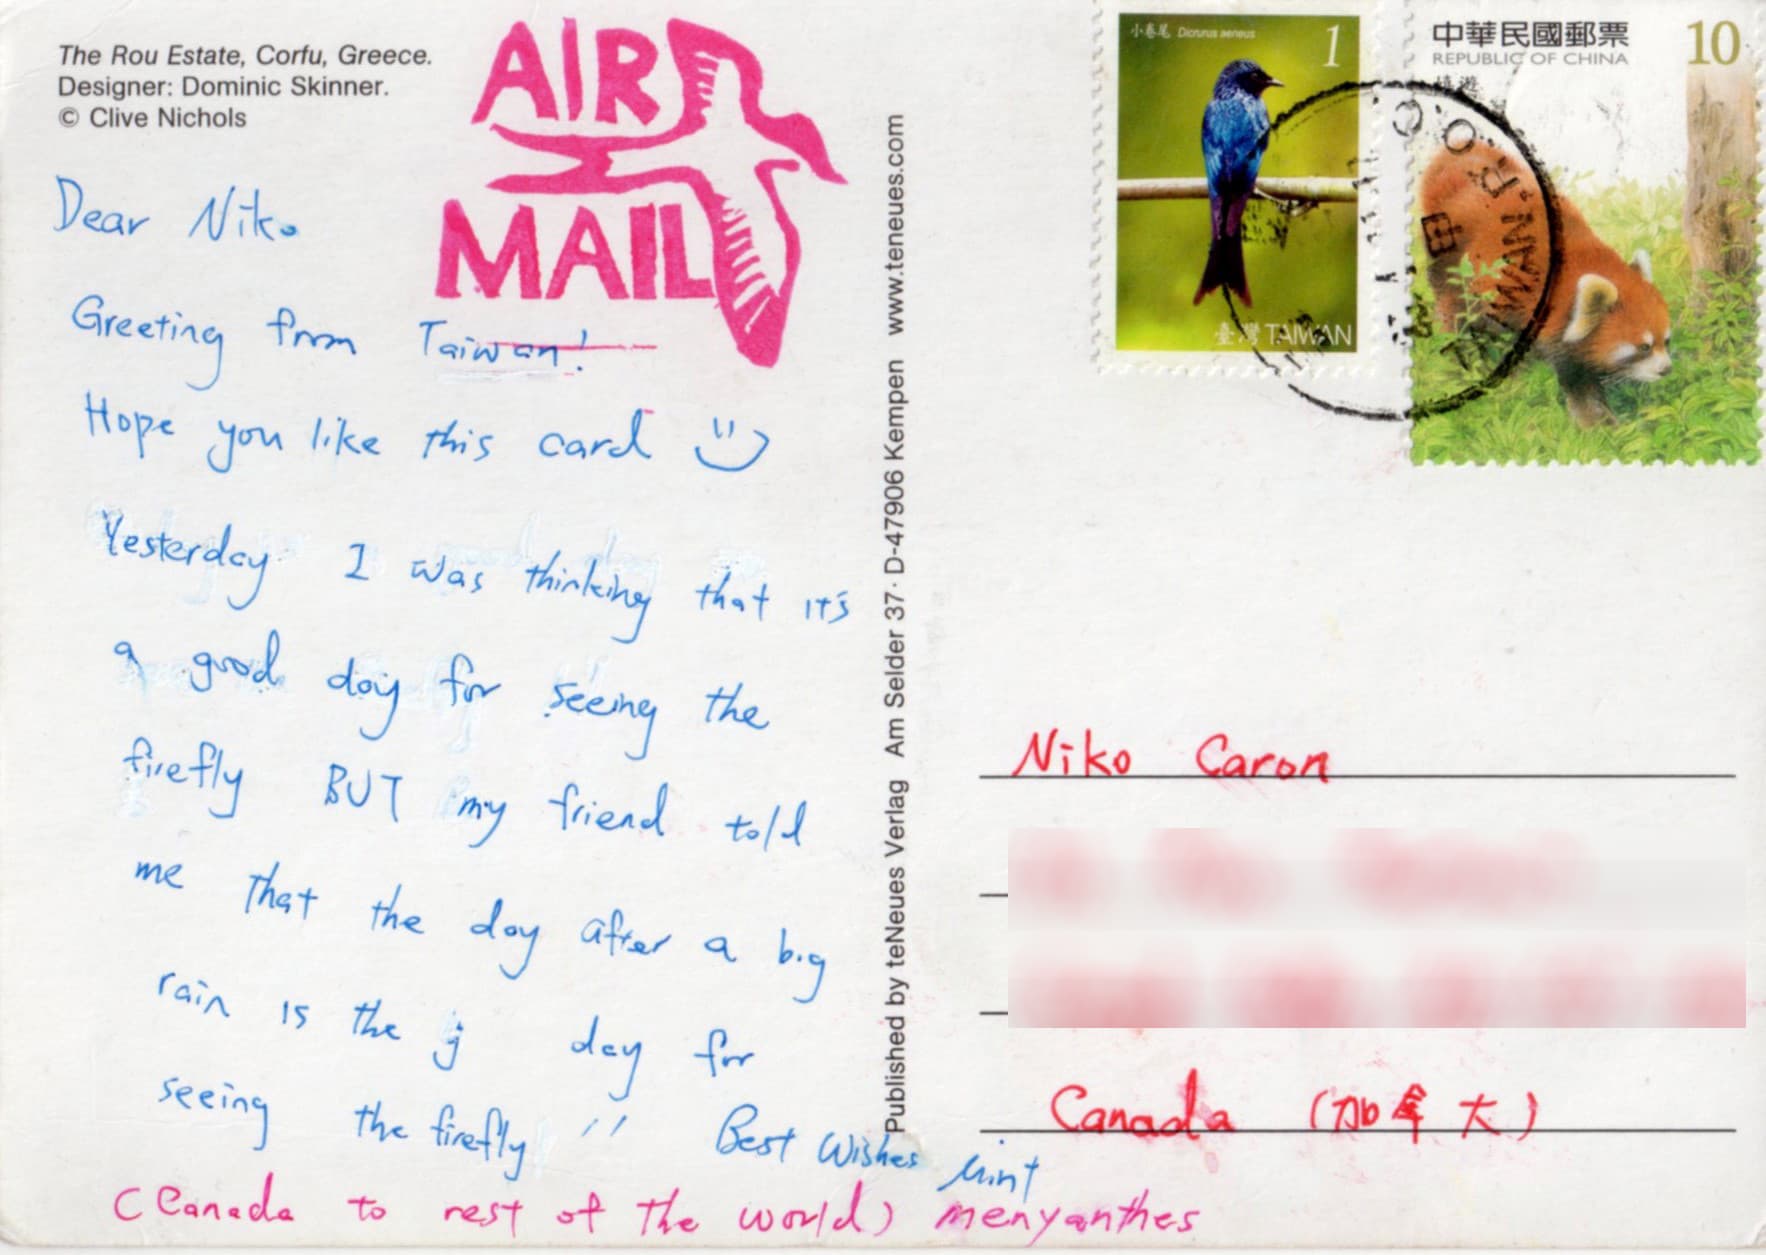 The Rou Estate, Corfu, Greece.
Designer: Dominic Skinner.
© Clive Nichols
AIR
MAIL
Dear Niko
Greeting from Taiwan!
Hope you like this card
Yesterday I was thinking that it's
a good day for seeing the
firefly BUT my friend told
me that the day after a big
rain is the day for
seeing the firefly !!
Best Wishes Mint
(Canada to rest of the world) menyanthes
Published by teNeues Verlag Am Selder 37 · D-47906 Kempen www.teneues.com
小卷尾 Dicrurus aeneus 1
臺灣 TAIWAN
中華民國郵票 10
REPUBLIC OF CHINA
TAIWAN R.O.C.
Niko Caron
Canada (加拿大)